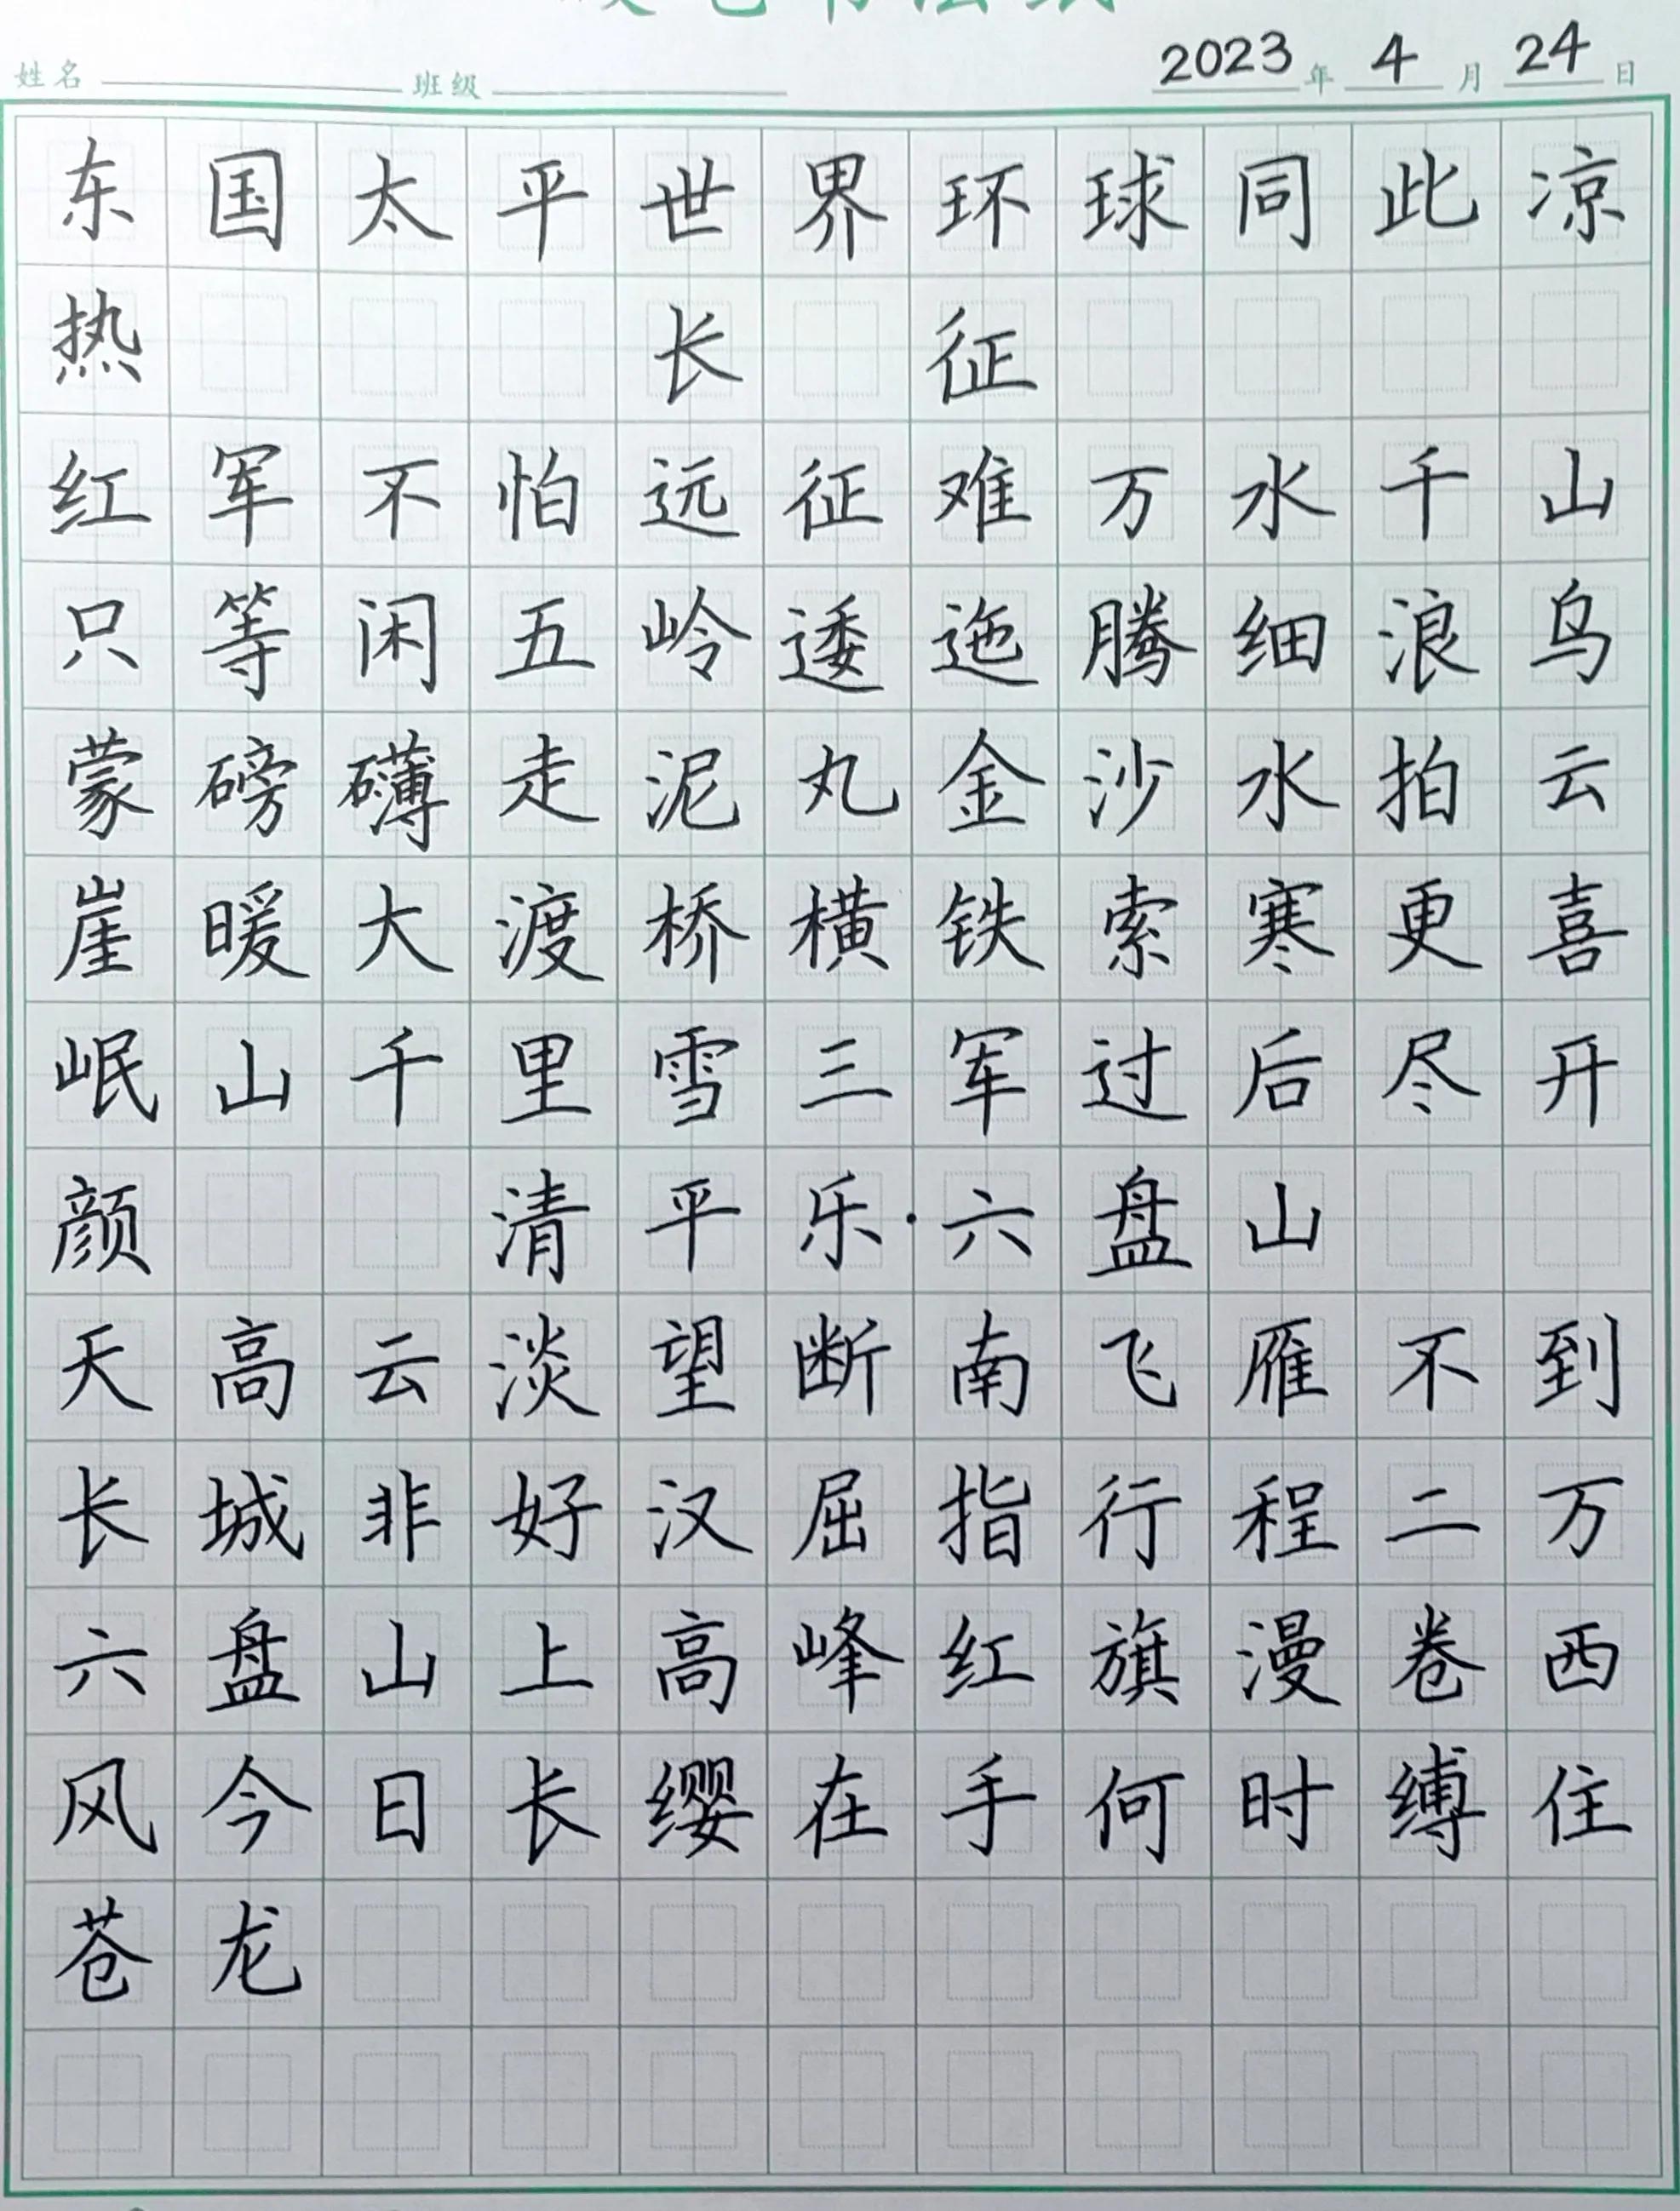 姓名 班级 2023年 4月 24日
东国太平世界环球同此凉
热 长 征
红军不怕远征难万水千山
只等闲五岭逶迤腾细浪乌
蒙磅礴走泥丸金沙水拍云
崖暖大渡桥横铁索寒更喜
岷山千里雪三军过后尽开
颜 清平乐·六盘山
天高云淡望断南飞雁不到
长城非好汉屈指行程二万
六盘山上高峰红旗漫卷西
风今日长缨在手何时缚住
苍龙